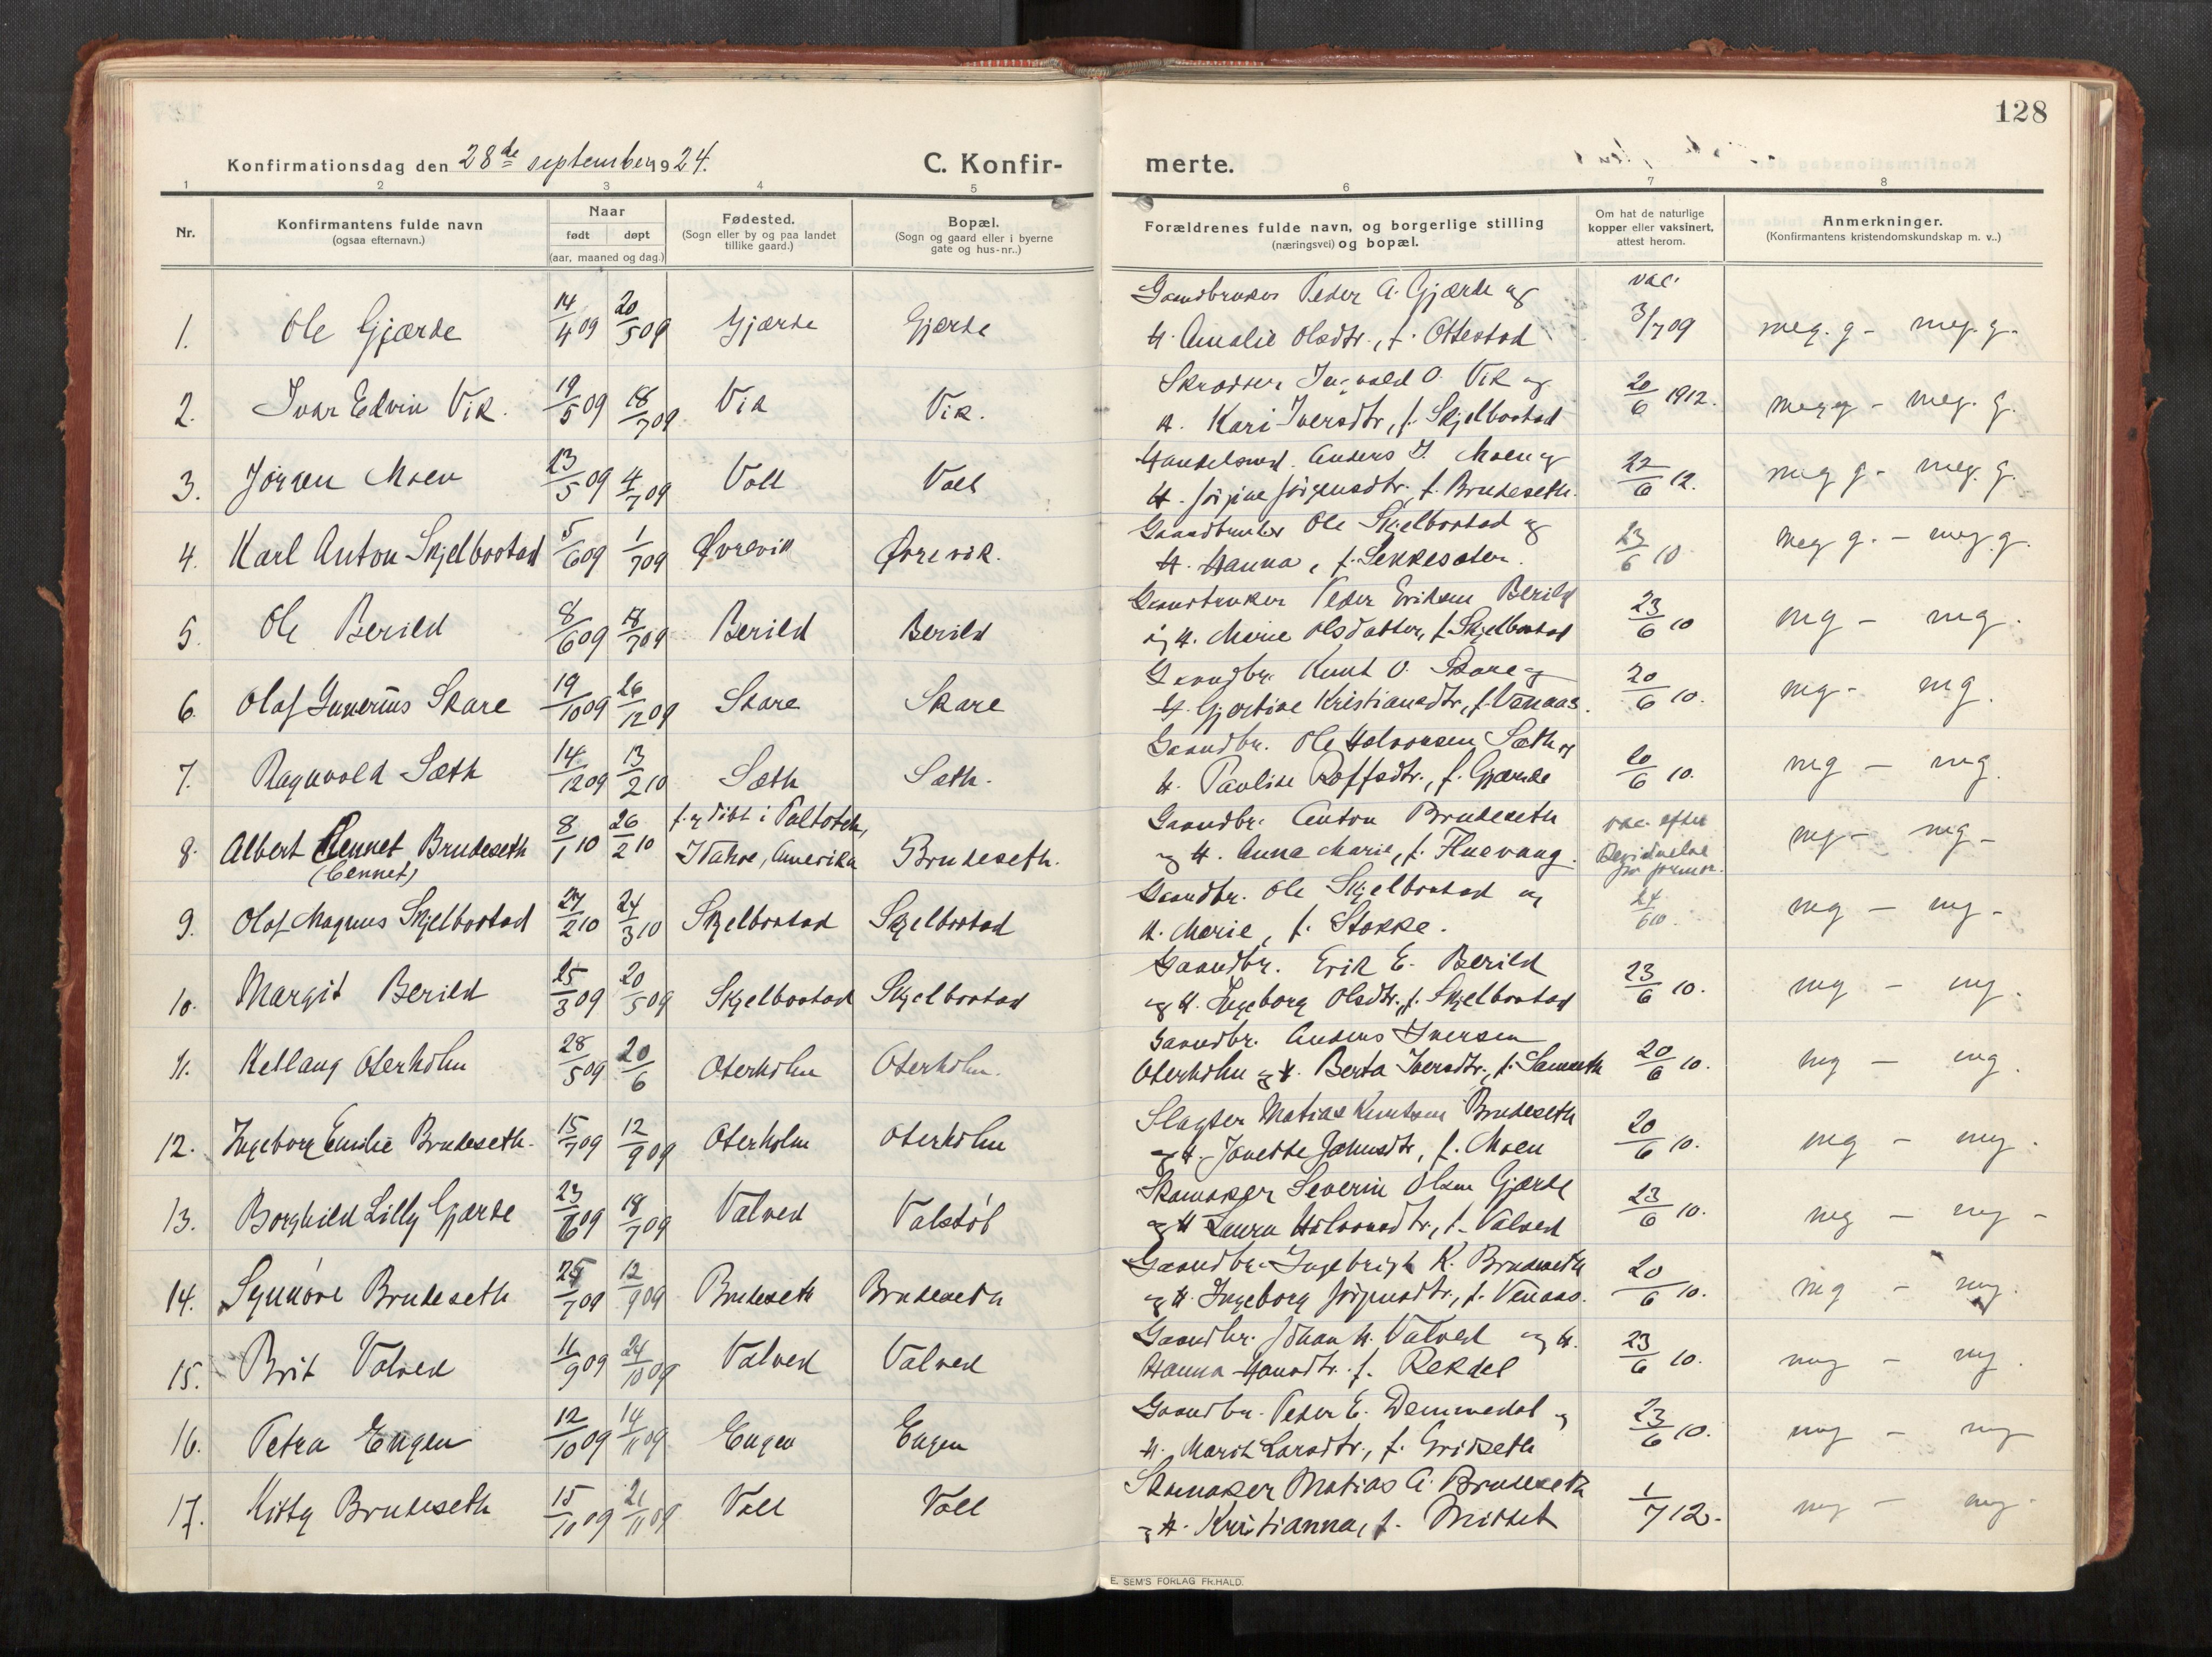 128
Konfirmationsdag den 28de september 1924.
C. Konfirmerte.
1 2 3 4 5 6 7 8
Nr.
Konfirmantens fulde navn
(ogsaa efternavn.)
Naar
født døpt
(aar, maaned og dag.)
Fødested.
(Sogn eller by og paa landet
tillike gaard.)
Bopæl.
(Sogn og gaard eller i byerne
gate og hus-nr..)
Forældrenes fulde navn, og borgerlige stilling
(næringsvei) og bopæl.
Om hat de naturlige
kopper eller vaksinert,
attest herom.
Anmerkninger.
(Konfirmantens kristendomskundskap m. v..)
Gaardbruker Peder A. Gjærde og vac.
1. Ole Gjærde 14/4 09 20/5 09 Gjærde Gjærde H. Amalie Olsdtr., f. Ottestad 3/7 09 meg. g - meg. g.
Skrædder Ingvald O. Vik og
2. Ivar Edvin Vik. 19/5 09 18/7 09 Vik Vik. H. Kari Iversdtr., f. Skjelbostad 20/6 1912. meg g - meg. g.
Handelsmd. Anders J. Moen og
3. Jörgen Moen 23/5 09 4/7 09 Voll Voll H. Jörgine Jörgensdtr. f. Brudeseth. 22/6 12. meg g - meg. g.
Gaardbruker Ole Skjelbostad og
4. Karl Anton Skjelbostad 5/6 09 1/7 09 Øvrevik Øvrevik. H. Hanna, f. Sekkesæter. 23/6 10 meg g. - meg g.
Gaardbruker Peder Eriksen Berild
5. Ole Berild 8/6 09 18/7 09 Berild Berild og H. Marie Olsdatter, f. Skjelbostad 23/6 10 mg - mg.
Gaardbr. Knut O. Skare og
6. Olaf Gunerius Skare 19/10 09 26/12 09 Skare Skare H. Gjertine Kristiansdtr., f. Venaas. 20/6 10. mg - mg.
Gaardbr. Ole Halvorsen Sæth og
7. Ragnvald Sæth 14/12 09 13/2 10 Sæth Sæth. H. Pauline Roffsdtr., f. Gjærde 20/6 10. mg - mg.
f. og döbt i
Gaardbr. Anton Brudeseth vac. efter
8. Albert Bennet Brudeseth 8/1 10 26/2 10 Idaho, Amerika Brudeseth. og H. Anna Marie, f. Fluevaag.
(Bennet)
mg - mg -
Gaardbr. Ole Skjelbostad og
9. Olaf Magnus Skjelbostad 27/2 10 24/3 10 Skjelbostad Skjelbostad H. Marie, f. Stokke. 24/6 10. mg - mg -
Gaardbr. Erik E. Berild
10. Margit Berild 25/3 09 20/5 09 Skjelbostad Skjelbostad og H. Ingeborg Olsdtr., f. Skjelbostad 23/6 10. mg - mg.
Gaardbr. Anders Iversen
11. Kellaug Oterholm 28/5 09 20/6 Oterholm Oterholm. Oterholm og H. Berta Iversdtr., f. 20/6 10. mg - mg.
Slagter Matias Knutsen Brudeseth
12. Ingeborg Emilie Brudeseth. 15/7 09 12/9 09 Oterholm Oterholm og H. Janette Johnsdtr, f. Moen 20/6 10. mg - mg.
Skomaker Severin Olsen Gjærde
13. Borghild Lilly Gjærde 23/6 09 18/7 09 Valved Valstöl og H Laura Halvorsdtr., f. Valved 23/6 10. mg - mg -
Gaardbr. Ingebrigt K. Brudeseth
14. Synnöve Brudeseth 25/7 09 12/9 09 Brudeseth Brudeseth og H. Ingeborg Jörgensdtr., f. Venaas. 20/6 10. mg - mg.
Gaardbr. Johan H. Valved og H.
15. Brit Valved 11/9 09 24/10 09 Valved Valved Hanna Hansdtr. f. Rekdal 23/6 10. mg - mg.
Gaardbr. Peder E. Dammedal og
16. Petra Engen 12/10 09 14/11 09 Engen Engen H. Marit Larsdtr., f. Gridseth 23/6 10. mg - mg
Skomaker Matias A. Brudeseth
17. Kitty Brudeseth 15/10 09 21/11 09 Voll Voll og H. Kristianna, f. Misset 1/7 12. mg - mg.
E. SEM'S FORLAG FR.HALD.